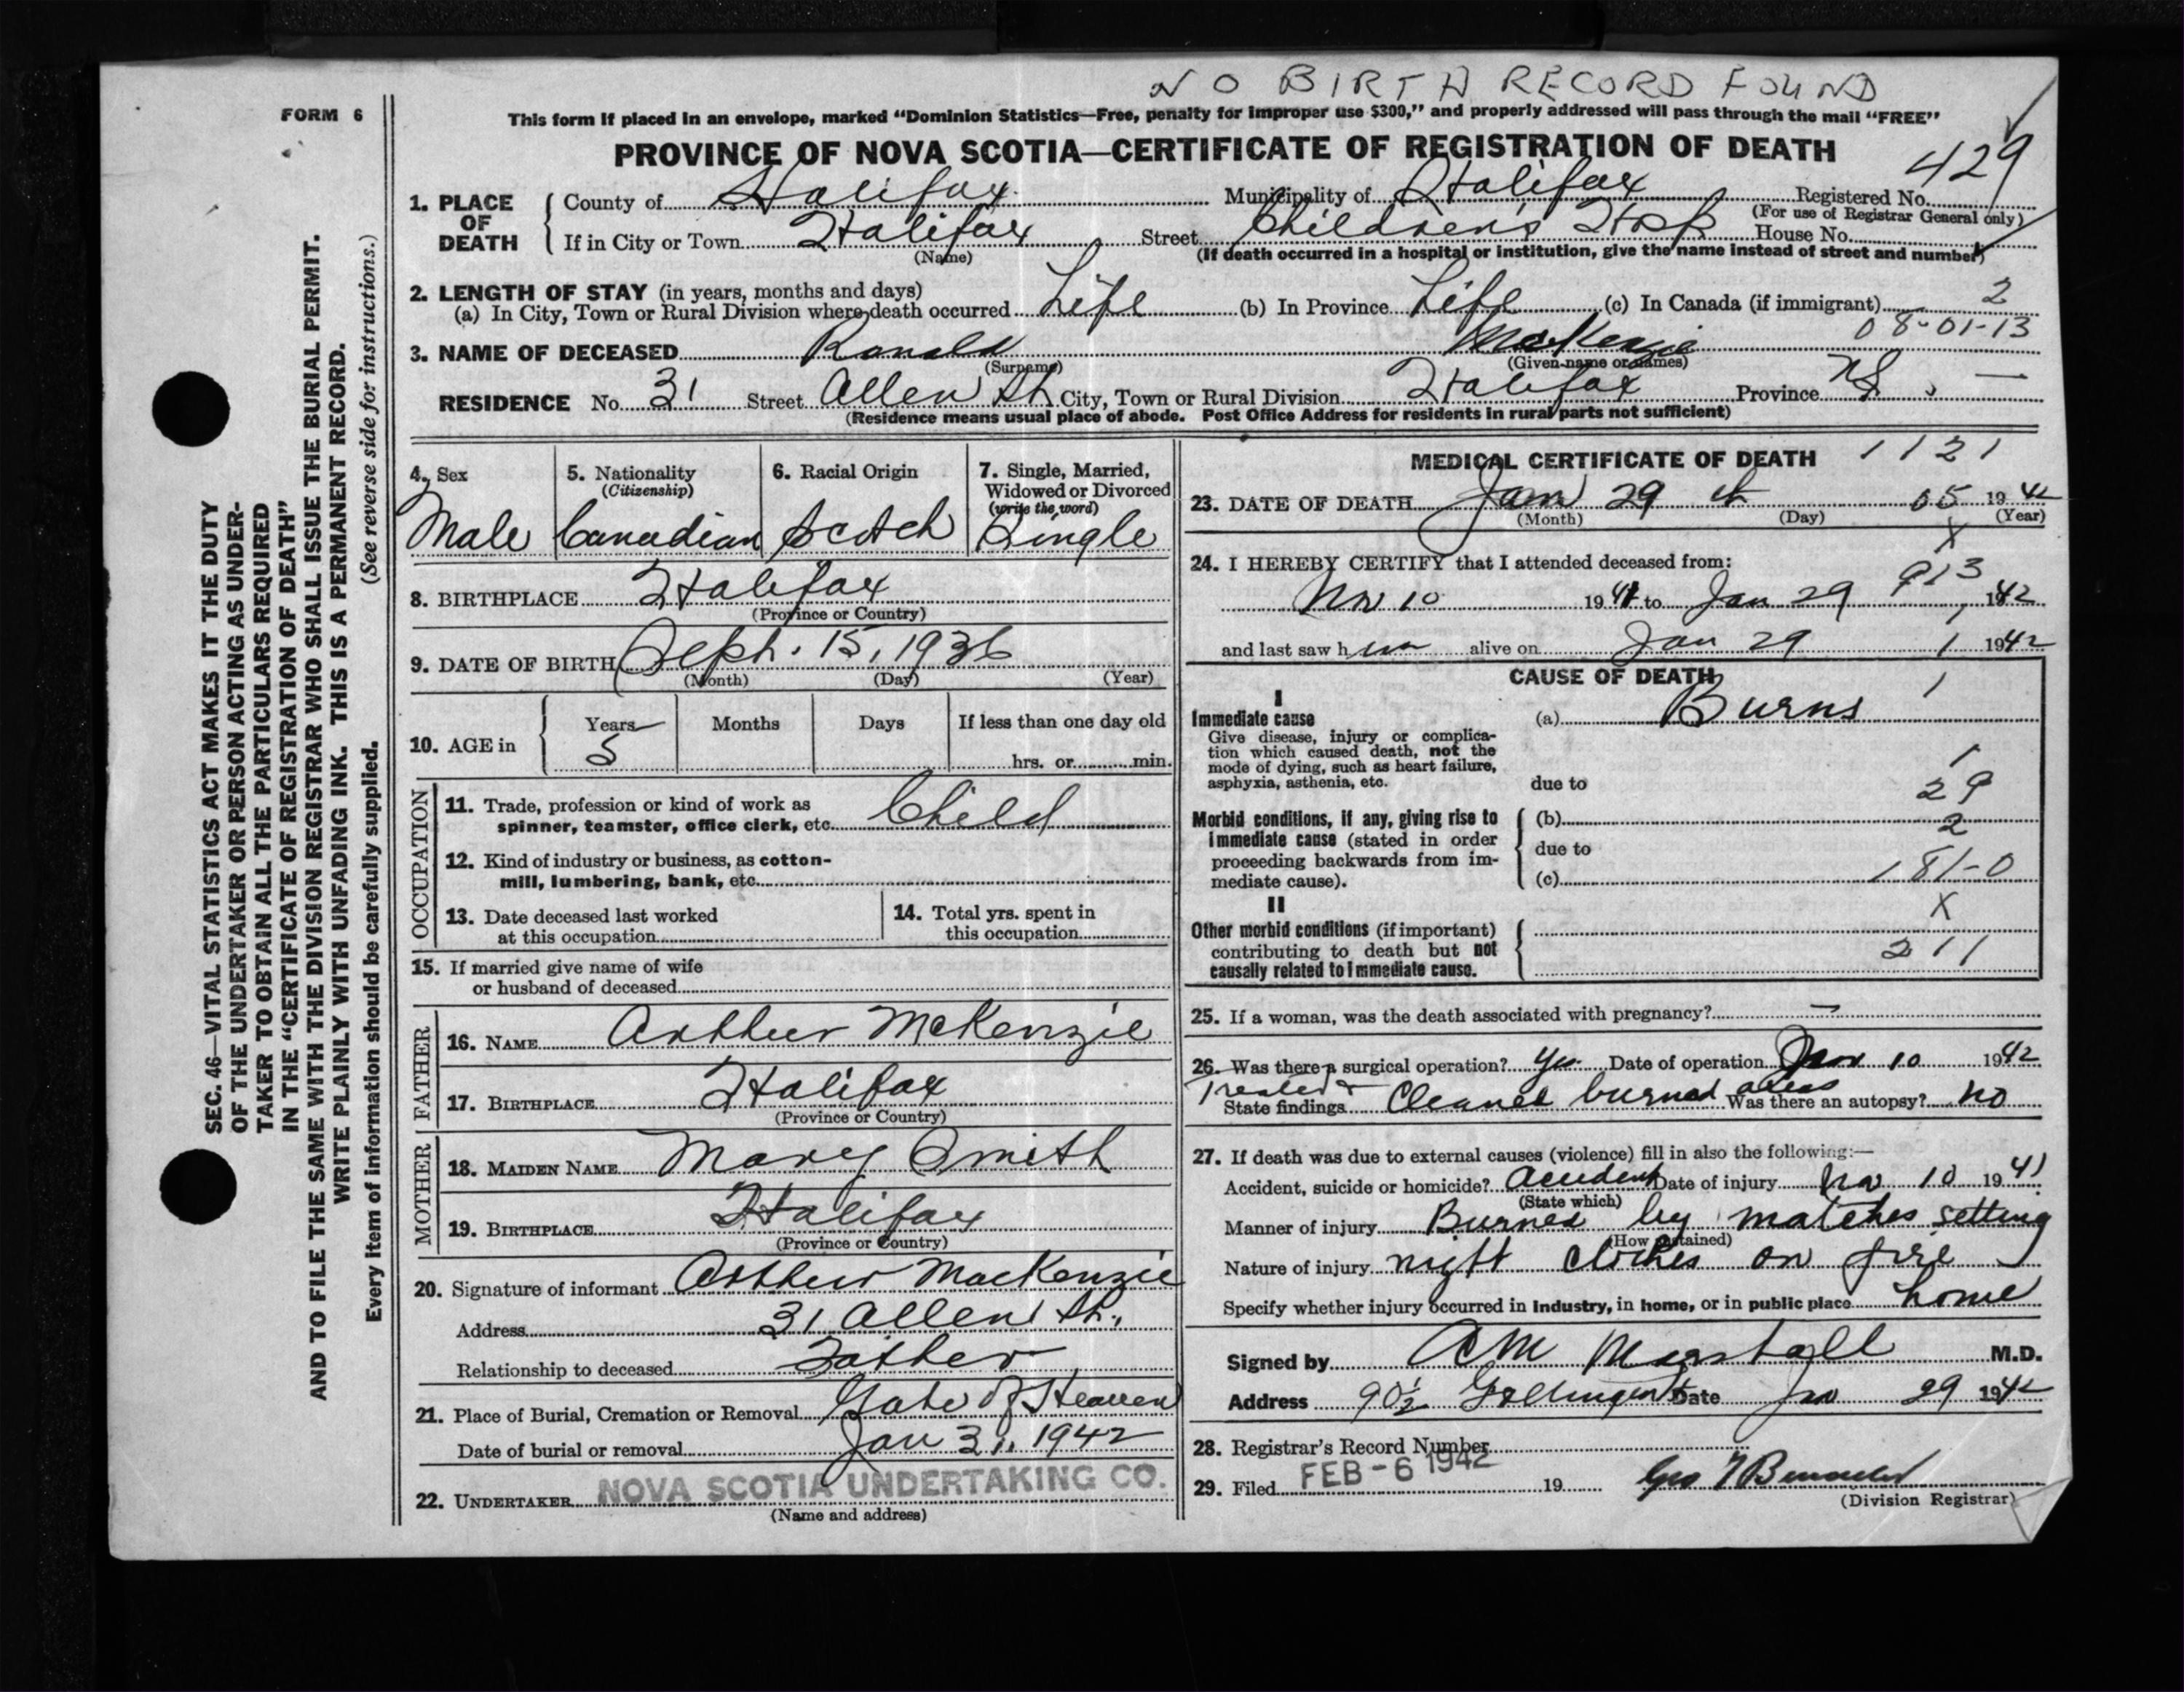 NO BIRTH RECORD FOUND
FORM 6
This form if placed in an envelope, marked "Dominion Statistics—Free, penalty for improper use $300," and properly addressed will pass through the mail "FREE"
PROVINCE OF NOVA SCOTIA—CERTIFICATE OF REGISTRATION OF DEATH
429
SEC. 46—VITAL STATISTICS ACT MAKES IT THE DUTY
OF THE UNDERTAKER OR PERSON ACTING AS UNDER-
TAKER TO OBTAIN ALL THE PARTICULARS REQUIRED
IN THE "CERTIFICATE OF REGISTRATION OF DEATH"
AND TO FILE THE SAME WITH THE DIVISION REGISTRAR WHO SHALL ISSUE THE BURIAL PERMIT.
WRITE PLAINLY WITH UNFADING INK. THIS IS A PERMANENT RECORD.
Every item of information should be carefully supplied. (See reverse side for instructions.)
1. PLACE OF DEATH
County of Halifax Municipality of Halifax Registered No.
(For use of Registrar General only)
If in City or Town Halifax Street Children's Hosp House No.
(Name) (If death occurred in a hospital or institution, give the name instead of street and number)
2. LENGTH OF STAY (in years, months and days)
(a) In City, Town or Rural Division where death occurred Life (b) In Province Life (c) In Canada (if immigrant) 2
08-01-13
3. NAME OF DECEASED Ronald MacKenzie
(Surname) (Given name or names)
RESIDENCE No. 31 Street Allen St City, Town or Rural Division Halifax Province NS. —
(Residence means usual place of abode. Post Office Address for residents in rural parts not sufficient)
4. Sex
Male
5. Nationality
(Citizenship)
Canadian
6. Racial Origin
Scotch
7. Single, Married,
Widowed or Divorced
(write the word)
Single
8. BIRTHPLACE Halifax
(Province or Country)
9. DATE OF BIRTH Sept. 15, 1936
(Month) (Day) (Year)
10. AGE in
Years Months Days If less than one day old
5 hrs. or min.
OCCUPATION
11. Trade, profession or kind of work as
spinner, teamster, office clerk, etc. Child
12. Kind of industry or business, as cotton-
mill, lumbering, bank, etc.
13. Date deceased last worked
at this occupation
14. Total yrs. spent in
this occupation
15. If married give name of wife
or husband of deceased
FATHER
16. NAME Arthur McKenzie
17. BIRTHPLACE Halifax
(Province or Country)
MOTHER
18. MAIDEN NAME Mary Smith
19. BIRTHPLACE Halifax
(Province or Country)
20. Signature of informant Arthur MacKenzie
Address 31 Allen St.
Relationship to deceased Father
21. Place of Burial, Cremation or Removal Gate of Heaven
Date of burial or removal Jan 31, 1942
22. UNDERTAKER NOVA SCOTIA UNDERTAKING CO.
(Name and address)
MEDICAL CERTIFICATE OF DEATH 1121
23. DATE OF DEATH Jan 29th 05 1942
(Month) (Day) (Year)
X
24. I HEREBY CERTIFY that I attended deceased from:
913
Nov 10 1941 to Jan 29 1942
and last saw him alive on Jan 29 1 1942
CAUSE OF DEATH
I
1
Immediate cause (a) Burns
Give disease, injury or complica-
tion which caused death, not the
mode of dying, such as heart failure,
asphyxia, asthenia, etc. due to
1
29
Morbid conditions, if any, giving rise to (b)
2
immediate cause (stated in order due to
proceeding backwards from im-
mediate cause). (c) 181-0
II
X
Other morbid conditions (if important)
contributing to death but not 211
causally related to immediate cause.
25. If a woman, was the death associated with pregnancy? —
26. Was there a surgical operation? Yes Date of operation Nov 10 1942
Treated +
State findings Cleaned burned areas Was there an autopsy? no
27. If death was due to external causes (violence) fill in also the following:—
Accident, suicide or homicide? Accident Date of injury Nov 10 1941
(State which)
Manner of injury Burned by matches setting
(How sustained)
Nature of injury night clothes on fire
Specify whether injury occurred in industry, in home, or in public place home
Signed by M.D.
Address 90½ Date Jan 29 1942
28. Registrar's Record Number
29. Filed FEB -6 1942 19
(Division Registrar)